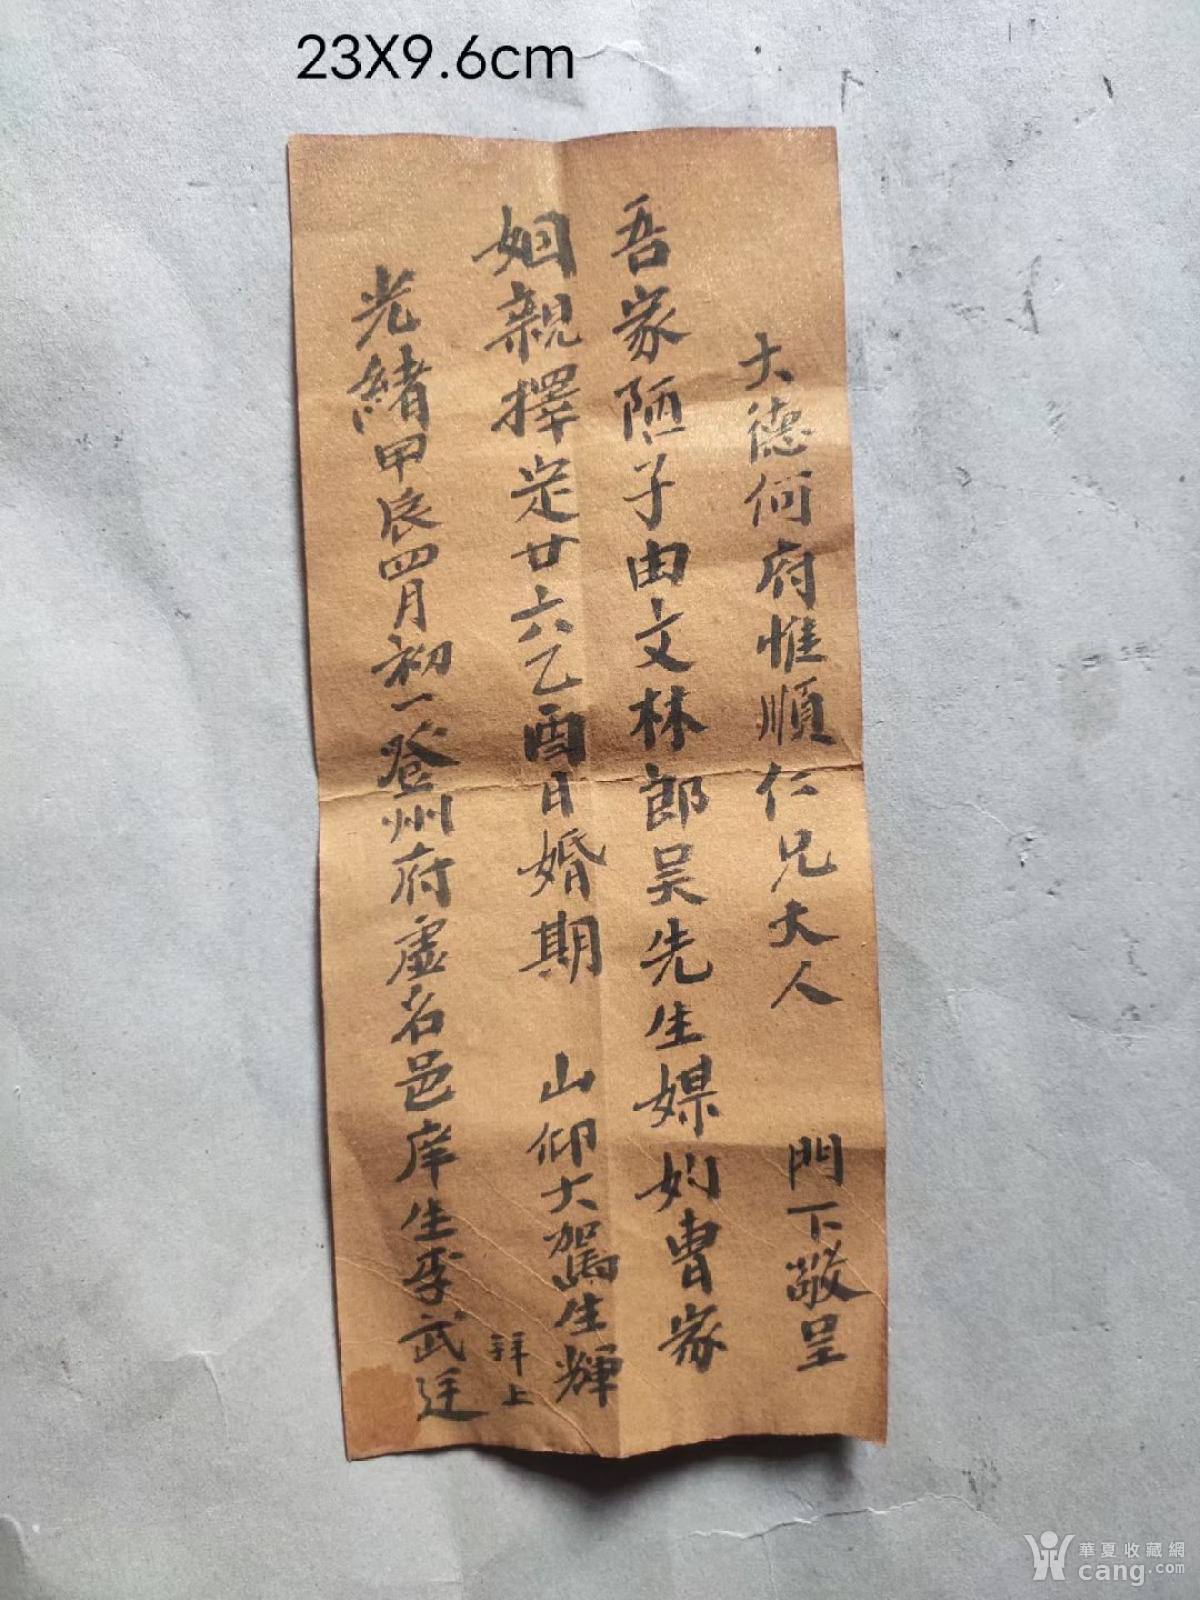 23X9.6cm
大德何府惟順仁兄大人 門下敬呈
吾家陋子由文林郎吴先生媒妁曹家
姻親擇定廿六乙酉日婚期 山仰大駕生輝
光緒甲辰四月初一登州府虛名邑庠生李武廷
拜上
華夏收藏網
cang.com